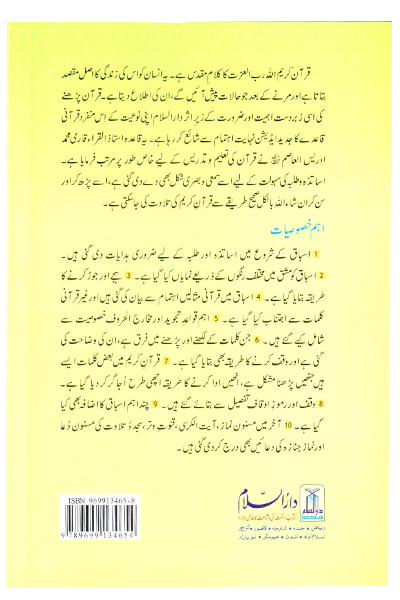 قرآن کریم اللہ رب العزت کا کلام مقدس ہے۔ یہ انسان کو اس کی زندگی کا اصل مقصد
بتاتا ہے اور مرنے کے بعد جو حالات پیش آئیں گے، ان کی اطلاع دیتا ہے۔ قرآن پڑھنے
کی اسی زبردست اہمیت اور ضرورت کے زیر اثر دارالسلام اپنی نوعیت کے اس منفرد قرآنی
قاعدے کا جدید ایڈیشن نہایت اہتمام سے شائع کر رہا ہے۔ یہ قاعدہ استاذ القراء قاری محمد
ادریس العاصم نے قرآن کی تعلیم و تدریس کے لیے خاص طور پر مرتب فرمایا ہے۔
اساتذہ و طلبہ کی سہولت کے لیے اسے سمعی و بصری شکل بھی دے دی گئی ہے، اسے پڑھ کر اور
سن کر ان شاء اللہ بالکل صحیح طریقے سے قرآن کریم کی تلاوت کی جاسکتی ہے۔
اہم خصوصیات
1 اسباق کے شروع میں اساتذہ اور طلبہ کے لیے ضروری ہدایات دی گئی ہیں۔
2 اسباق کو مشق میں مختلف رنگوں کے ذریعے نمایاں کیا گیا ہے۔ 3 ہجے اور جوڑ کرنے کا
طریقہ بتایا گیا ہے۔ 4 اسباق میں قرآنی مثالیں اہتمام سے بیان کی گئی ہیں اور غیر قرآنی
کلمات سے اجتناب کیا گیا ہے۔ 5 اہم قواعد تجوید اور مخارج الحروف خصوصیت سے
شامل کیے گئے ہیں۔ 6 جن کلمات کے لکھنے اور پڑھنے میں فرق ہے، ان کی وضاحت کی
گئی ہے اور وقف کرنے کا طریقہ بھی بتایا گیا ہے۔ 7 قرآن کریم میں بعض کلمات ایسے
ہیں جنھیں پڑھنا مشکل ہے، انھیں ادا کرنے کا طریقہ اچھی طرح اُجاگر کر دیا گیا ہے۔
8 وقف اور رموز اوقاف تفصیل سے بتائے گئے ہیں۔ 9 چند اہم اسباق کا اضافہ بھی کیا
گیا ہے۔ 10 آخر میں مسنون نماز، آیت الکرسی، قنوت وتر، سجدۂ تلاوت کی مسنون دُعا
اور نماز جنازہ کی دعائیں بھی درج کر دی گئی ہیں۔
ISBN 969913465-8
9 789699 134654
دارالسلام
ریاض • جدہ • شارجہ • لاہور • کراچی
اسلام آباد • لندن • ہیوسٹن • نیو یارک